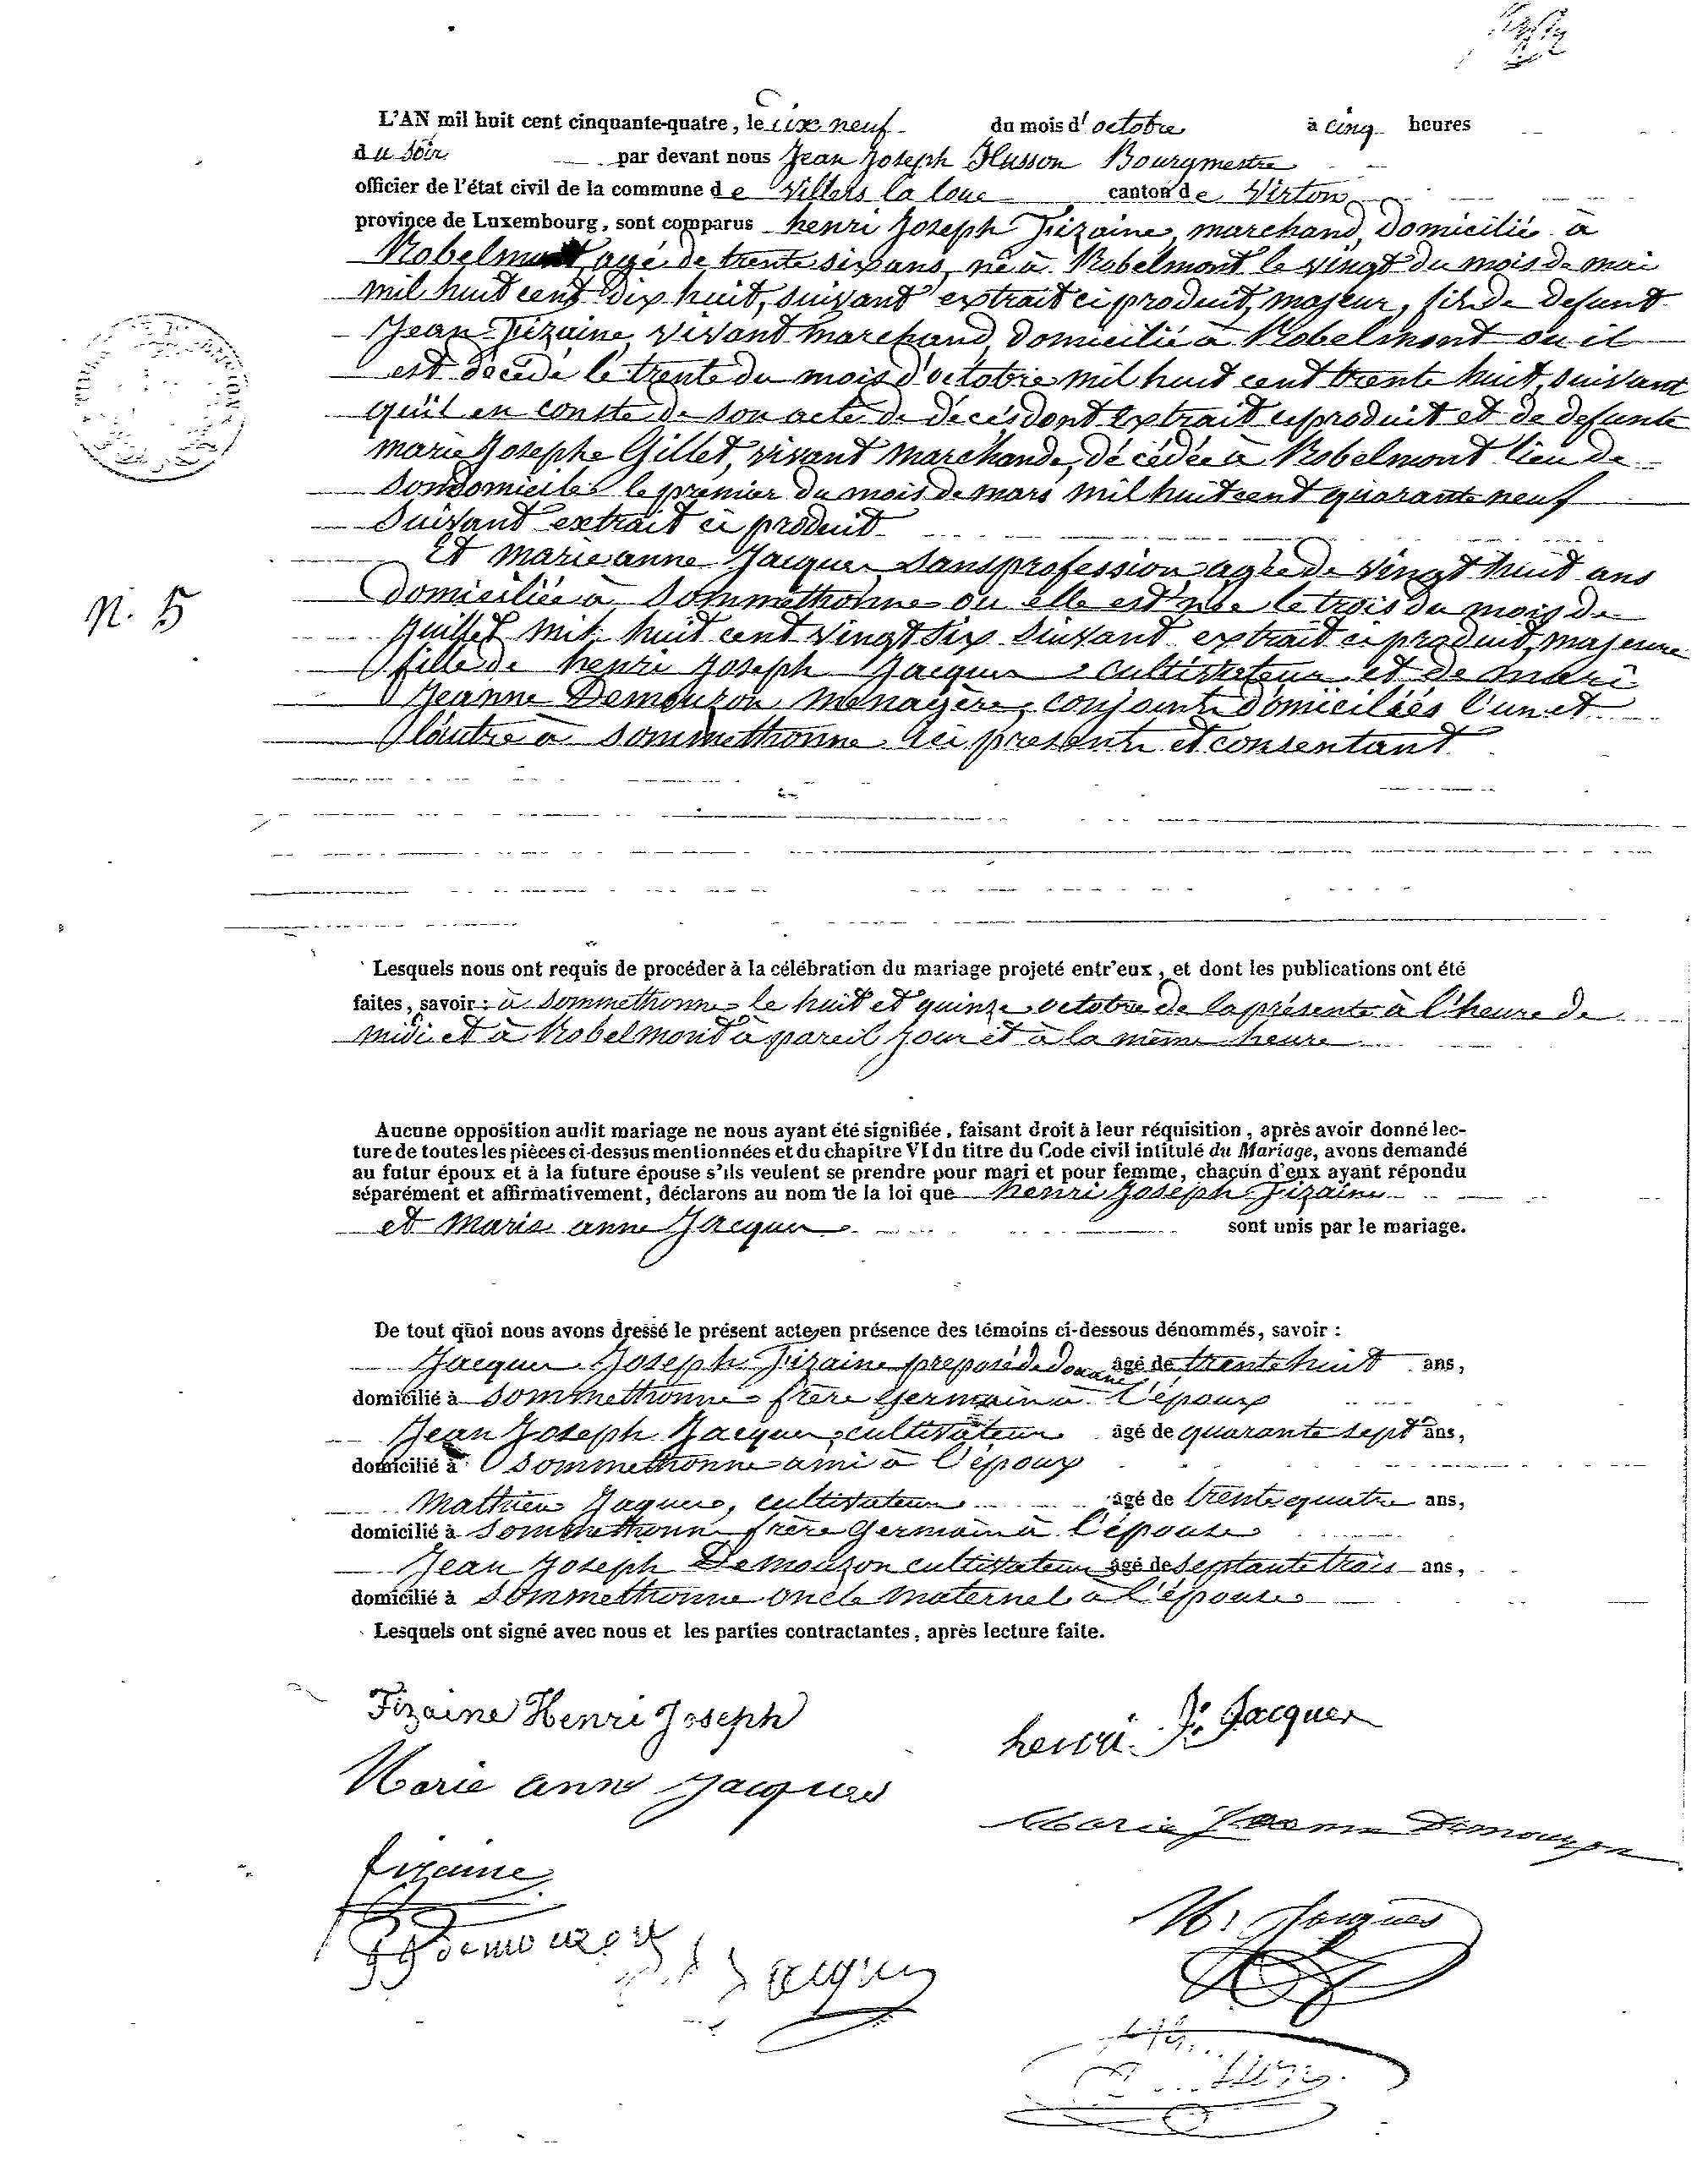 L'AN mil huit cent cinquante-quatre, le dix neuf du mois d'octobre à cinq heures
du soir par devant nous Jean Joseph Husson Bourgmestre
officier de l'état civil de la commune de Villers la loue canton de Virton
province de Luxembourg, sont comparus henri Joseph Fizaine, marchand, Domicilié à
Robelmont agé de trente six ans, né à Robelmont le vingt du mois de mai
mil huit cent dix huit, suivant extrait ci produit, majeur, fils de defunt
Jean Fizaine, vivant marchand, domicilié à Robelmont ou il
est décédé le trente du mois d'octobre mil huit cent trente huit, suivant
qu'il en conste de son acte de décès dont extrait ci produit et de defunte
marie Josephe Gillet, vivant marchande, décédée à Robelmont lieu de
son domicile le premier du mois de mars mil huit cent quarante neuf
suivant extrait ci produit
Et marie anne Jacques, sans profession, agée de vingt huit ans
domiciliée à Sommethonne ou elle est née le trois du mois de
Juillet mil huit cent vingt six suivant extrait ci produit, majeure
fille de henri Joseph Jacques cultivateur et de marie
Jeanne Demouzon, ménagère, conjoints domiciliés l'un et
l'autre à Sommethonne ici présents et consentant
N. 5
Lesquels nous ont requis de procéder à la célébration du mariage projeté entr'eux, et dont les publications ont été
faites, savoir : à Sommethonne le huit et quinze octobre de la présente à l'heure de
midi et à Robelmont à pareil jour et à la même heure
Aucune opposition audit mariage ne nous ayant été signifiée, faisant droit à leur réquisition, après avoir donné lec-
ture de toutes les pièces ci-dessus mentionnées et du chapitre VI du titre du Code civil intitulé du Mariage, avons demandé
au futur époux et à la future épouse s'ils veulent se prendre pour mari et pour femme, chacun d'eux ayant répondu
séparément et affirmativement, déclarons au nom de la loi que henri Joseph Fizaine
et marie anne Jacques sont unis par le mariage.
De tout quoi nous avons dressé le présent acte, en présence des témoins ci-dessous dénommés, savoir :
Jacques Joseph Fizaine préposé de douane âgé de trente huit ans,
domicilié à Sommethonne frère germain à l'époux
Jean Joseph Jacques, cultivateur âgé de quarante sept ans,
domicilié à Sommethonne ami à l'époux
Mathieu Jaques, cultivateur âgé de trente quatre ans,
domicilié à Sommethonne frère germain à l'épouse
Jean Joseph Demouzon cultivateur âgé de septante trois ans,
domicilié à Sommethonne oncle maternel à l'épouse
Lesquels ont signé avec nous et les parties contractantes, après lecture faite.
Fizaine Henri Joseph
henri. J: Jacques
Marie anne Jacques
Marie Jeanne Demouzon
fizaine
M: Jacques
JJ demouzon
J Jacques